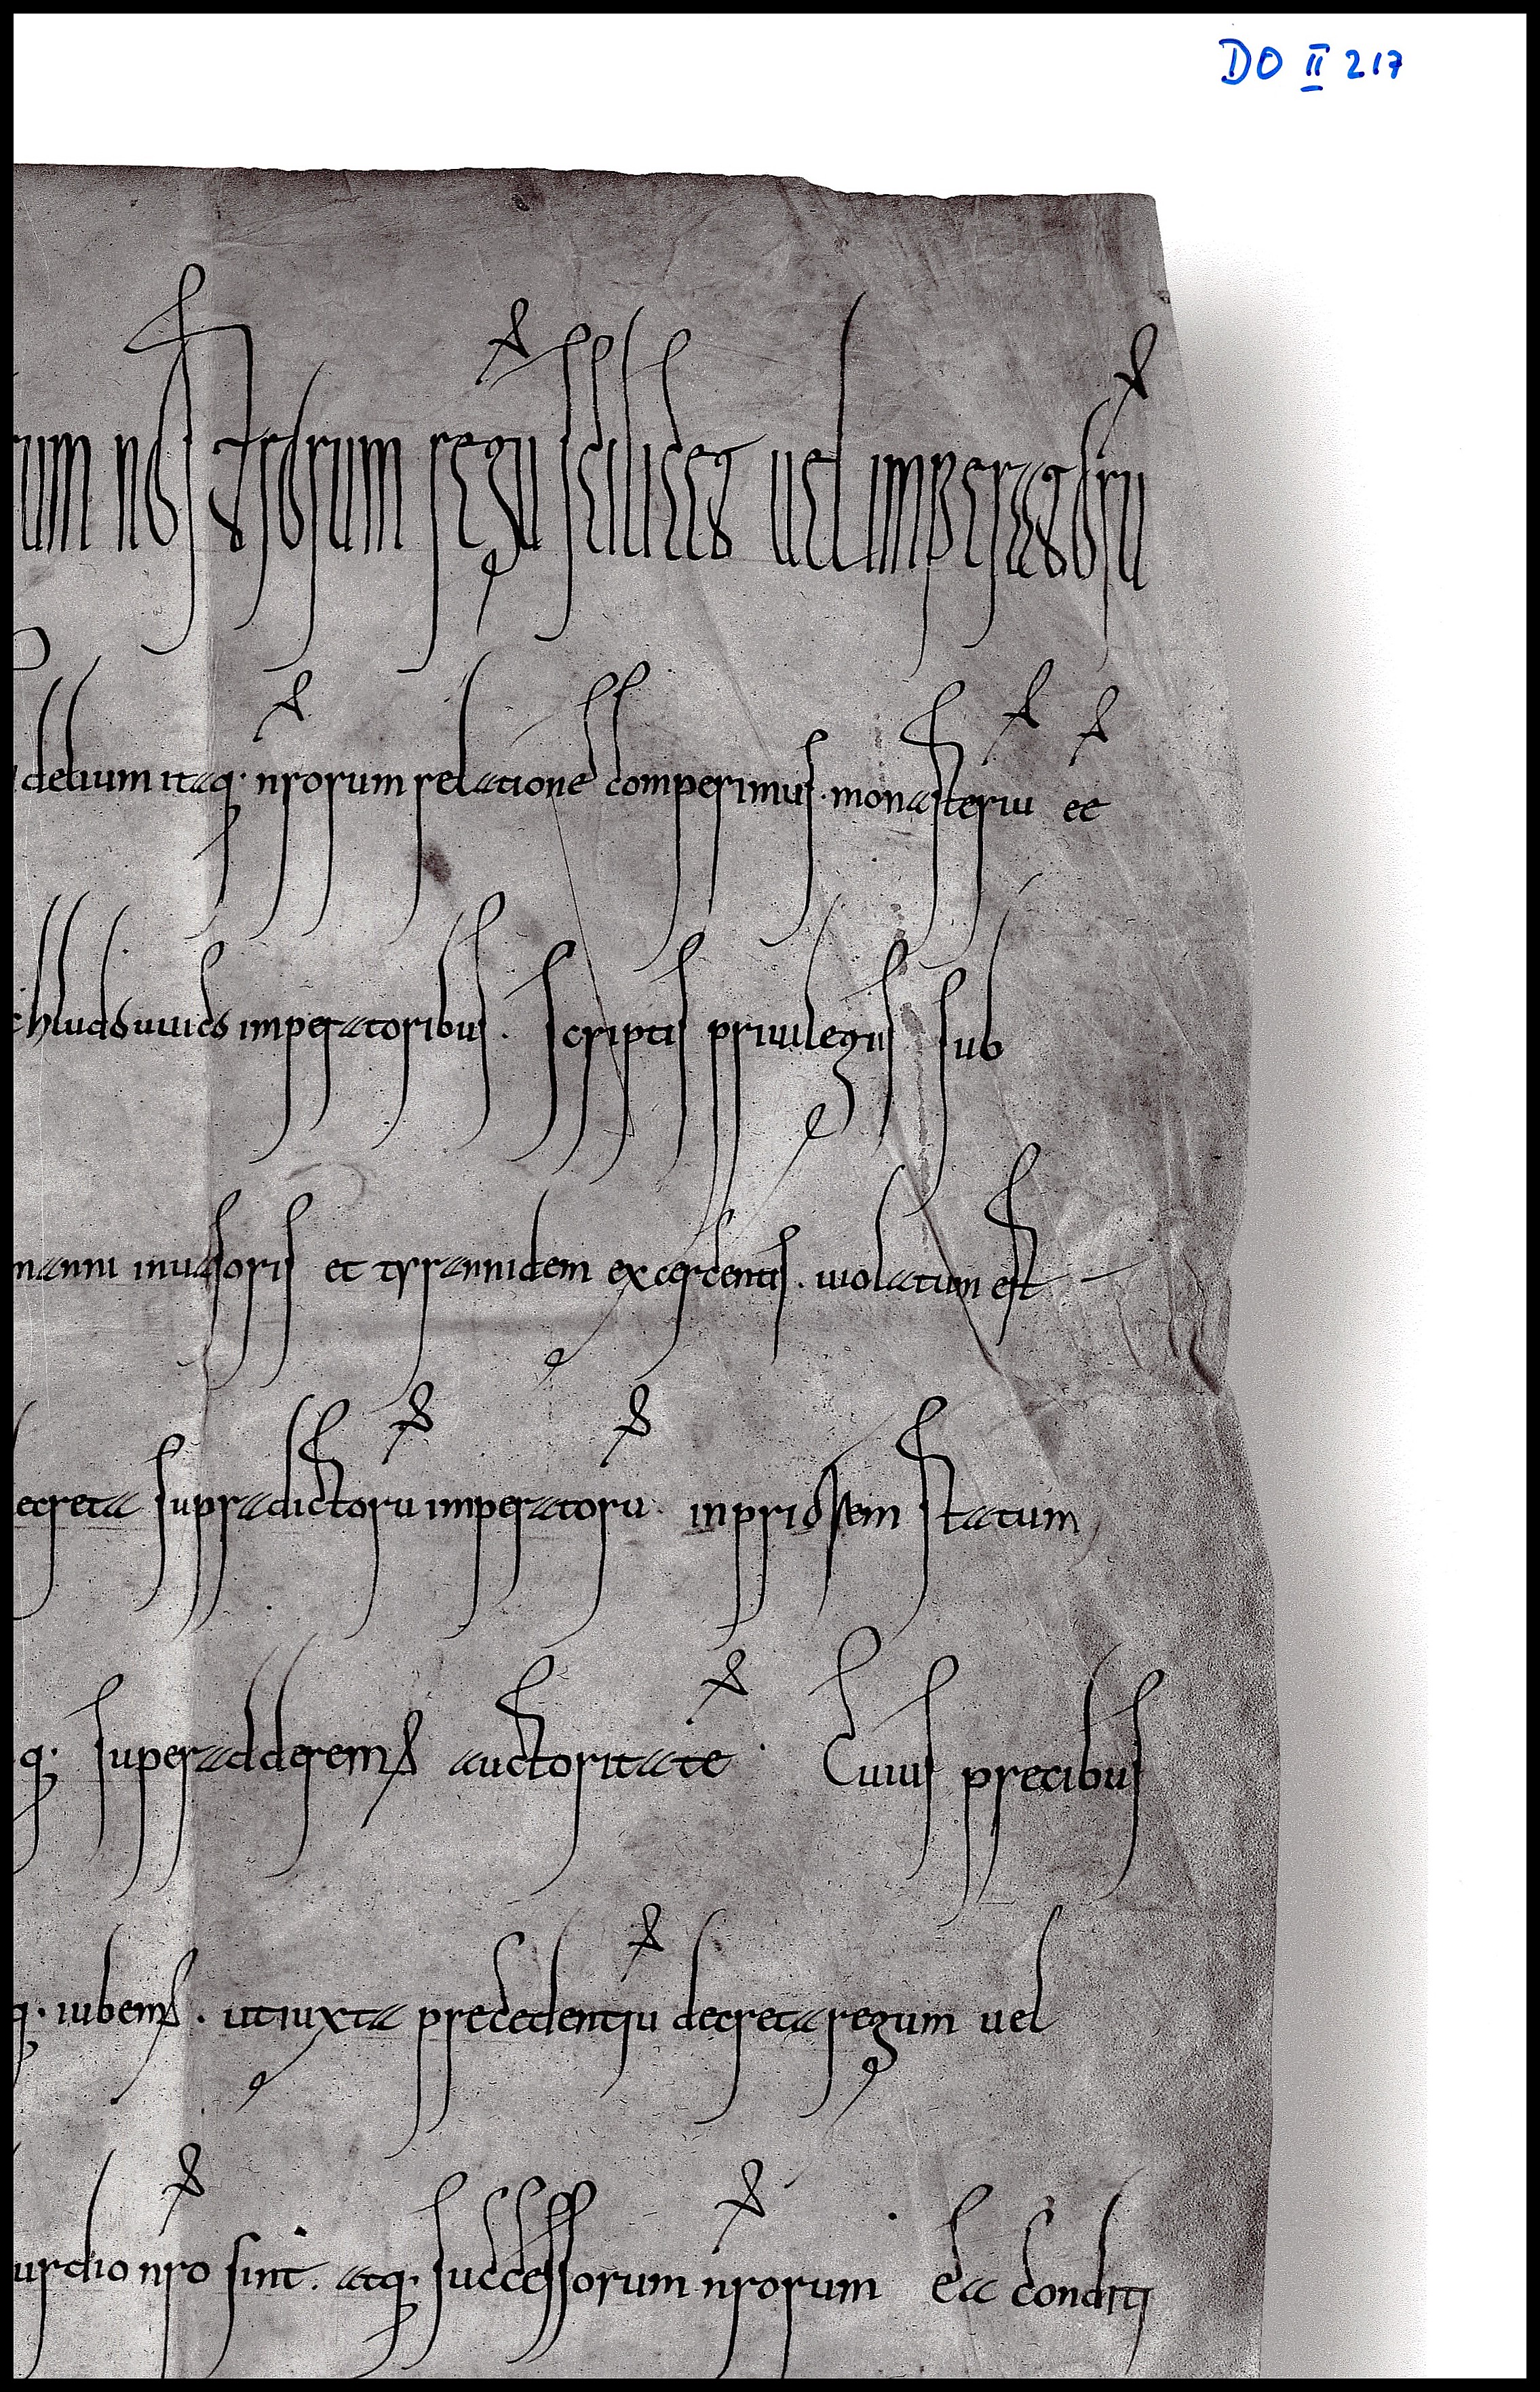 DO II 217
rum nostrorum regū scilicet uel imperatorū
delium itaq· nrorum relatione comperimus· monasteriū eē
chludouuico imperatoribus· scriptis priuilegiis sub
manni inuasoris et tyrannidem excercentis· uiolatum est
ecreta supradictorū imperatorū· in priorem statum
q· superadderemus auctoritatē· Cuius precibus
q· iubemus· ut iuxta precedentiū decreta regum uel
urdio nro sint· atq· successorum nrorum ea conditi